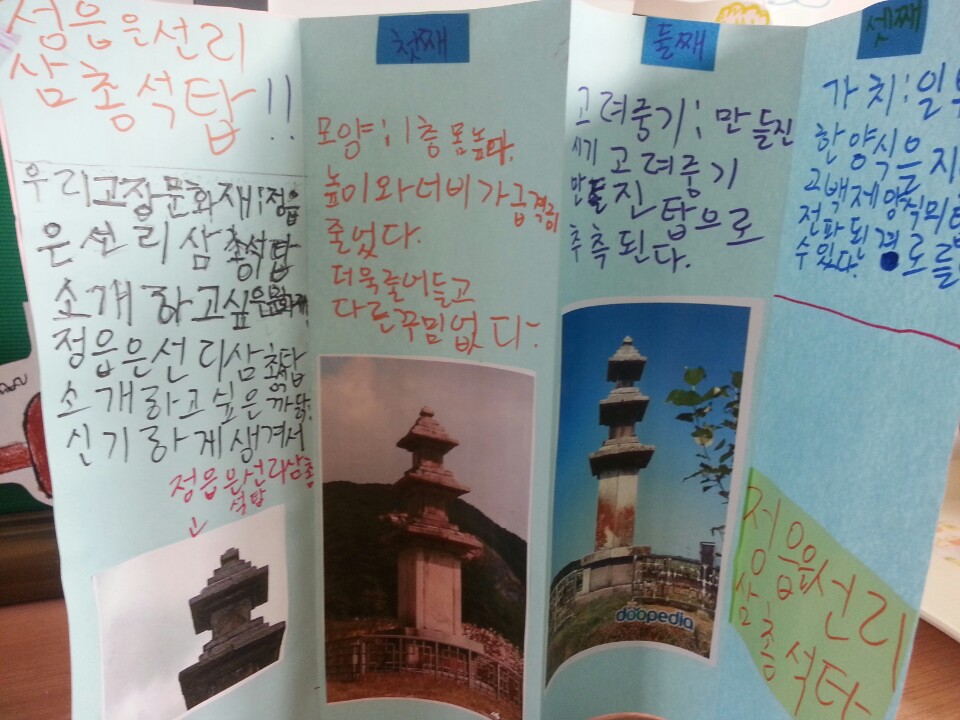 정읍은선리
삼층석탑!!
우리고장문화재:정읍
은선리삼층석탑
소개하고싶은문화재:
정읍은선리삼층탑
소개하고싶은까닭:
신기하게생겨서
정읍은선리삼층
석탑
첫째
모양:1층몸높다.
높이와너비가급격히
줄었다.
더욱줄어들고
다른꾸밈없다
둘째
고려중기:만들진
시기고려중기
만들진탑으로
추측된다.
doopedia
셋째
가치:일
한양식은지
고백제양식의
전파된경로를
수있다.
정읍은선리
삼층석타